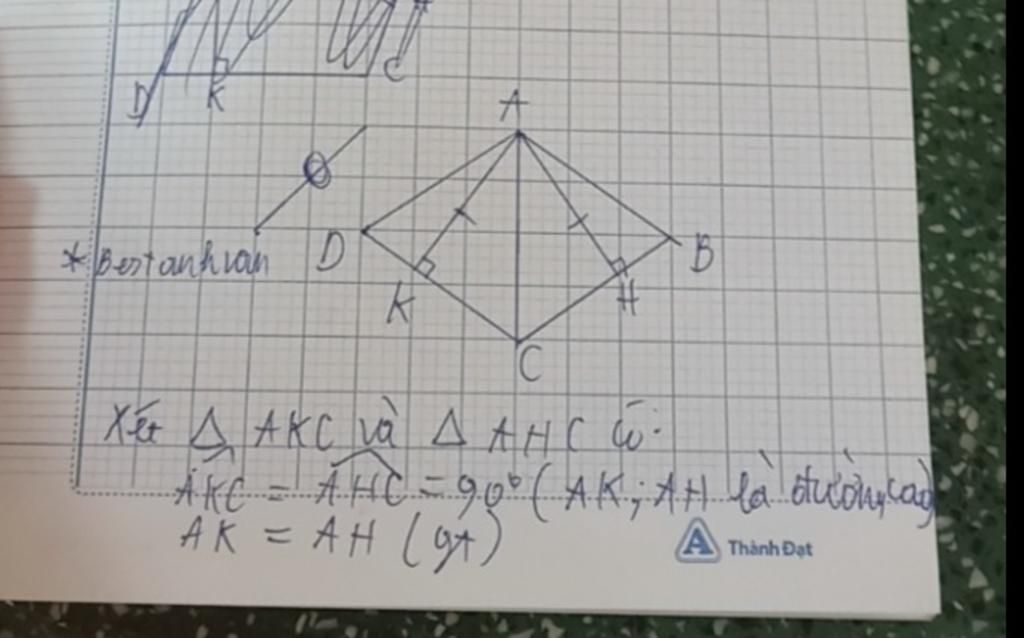 D K C
A
D B
* Bestanhvan
K H
C
Xét Δ AKC và Δ AHC có:
AKC = AHC = 90° ( AK; AH là đường cao)
AK = AH (gt)
A Thành Đạt